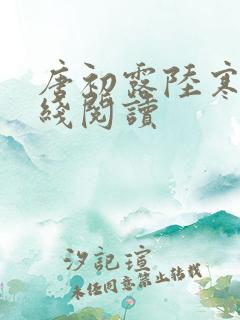 唐初露陸寒
綫閱讀
汐記瑄
未经同意禁止转载